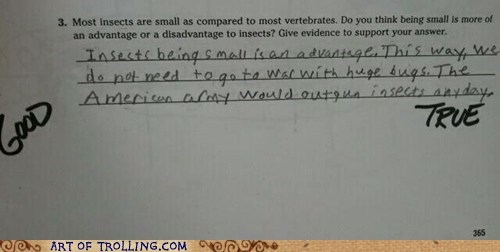 3. Most insects are small as compared to most vertebrates. Do you think being small is more of
an advantage or a disadvantage to insects? Give evidence to support your answer.
Insects being small is an advantage. This way, we
do not need to go to war with huge bugs. The
American army would outgun insects anyday.
GOOD
TRUE
365
ART OF TROLLING.COM